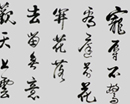 寵辱不驚
看庭前花
開花落
去留無意
天上雲